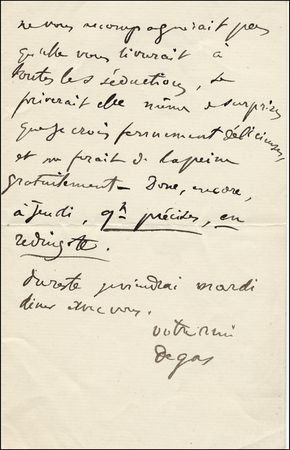 ne vous accompagnerait pas
qu'elle vous livrerait à
toutes les séductions, se
priverait elle même de surprises
que je crois fermement délicieuses,
et me ferait de la peine
gratuitement – Donc, encore,
à Jeudi, 9h précises, en
redingote.
Du reste je viendrai mardi
dîner avec vous.
votre ami
Degas